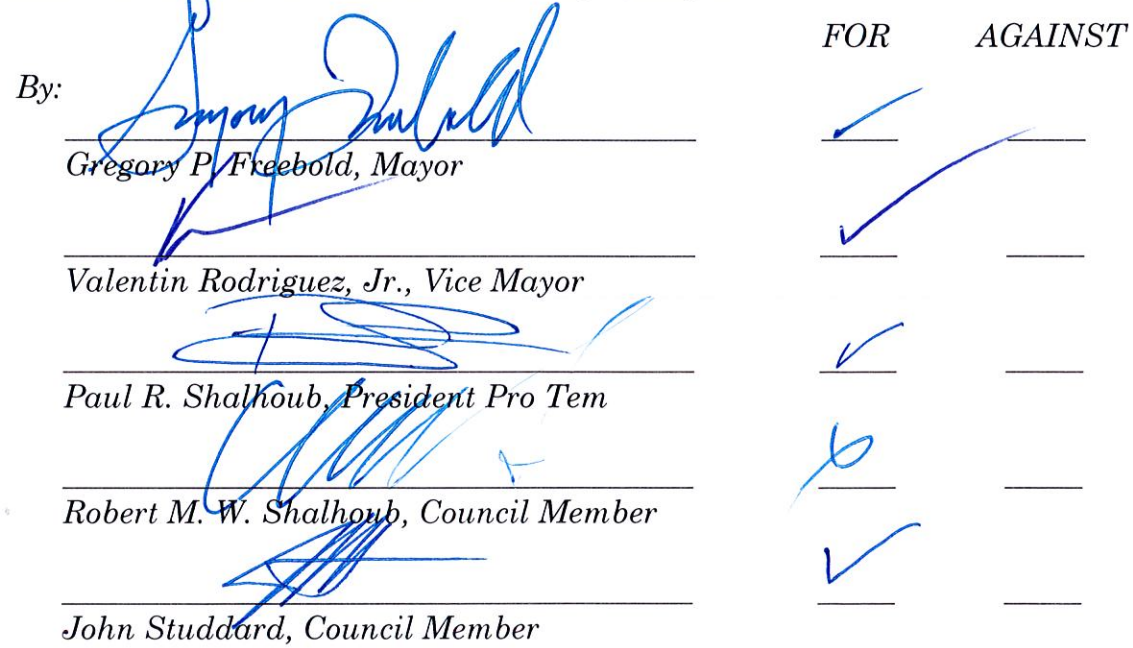 FOR AGAINST
By:
Gregory P. Freebold, Mayor
Valentin Rodriguez, Jr., Vice Mayor
Paul R. Shalhoub, President Pro Tem
Robert M. W. Shalhoub, Council Member
John Studdard, Council Member